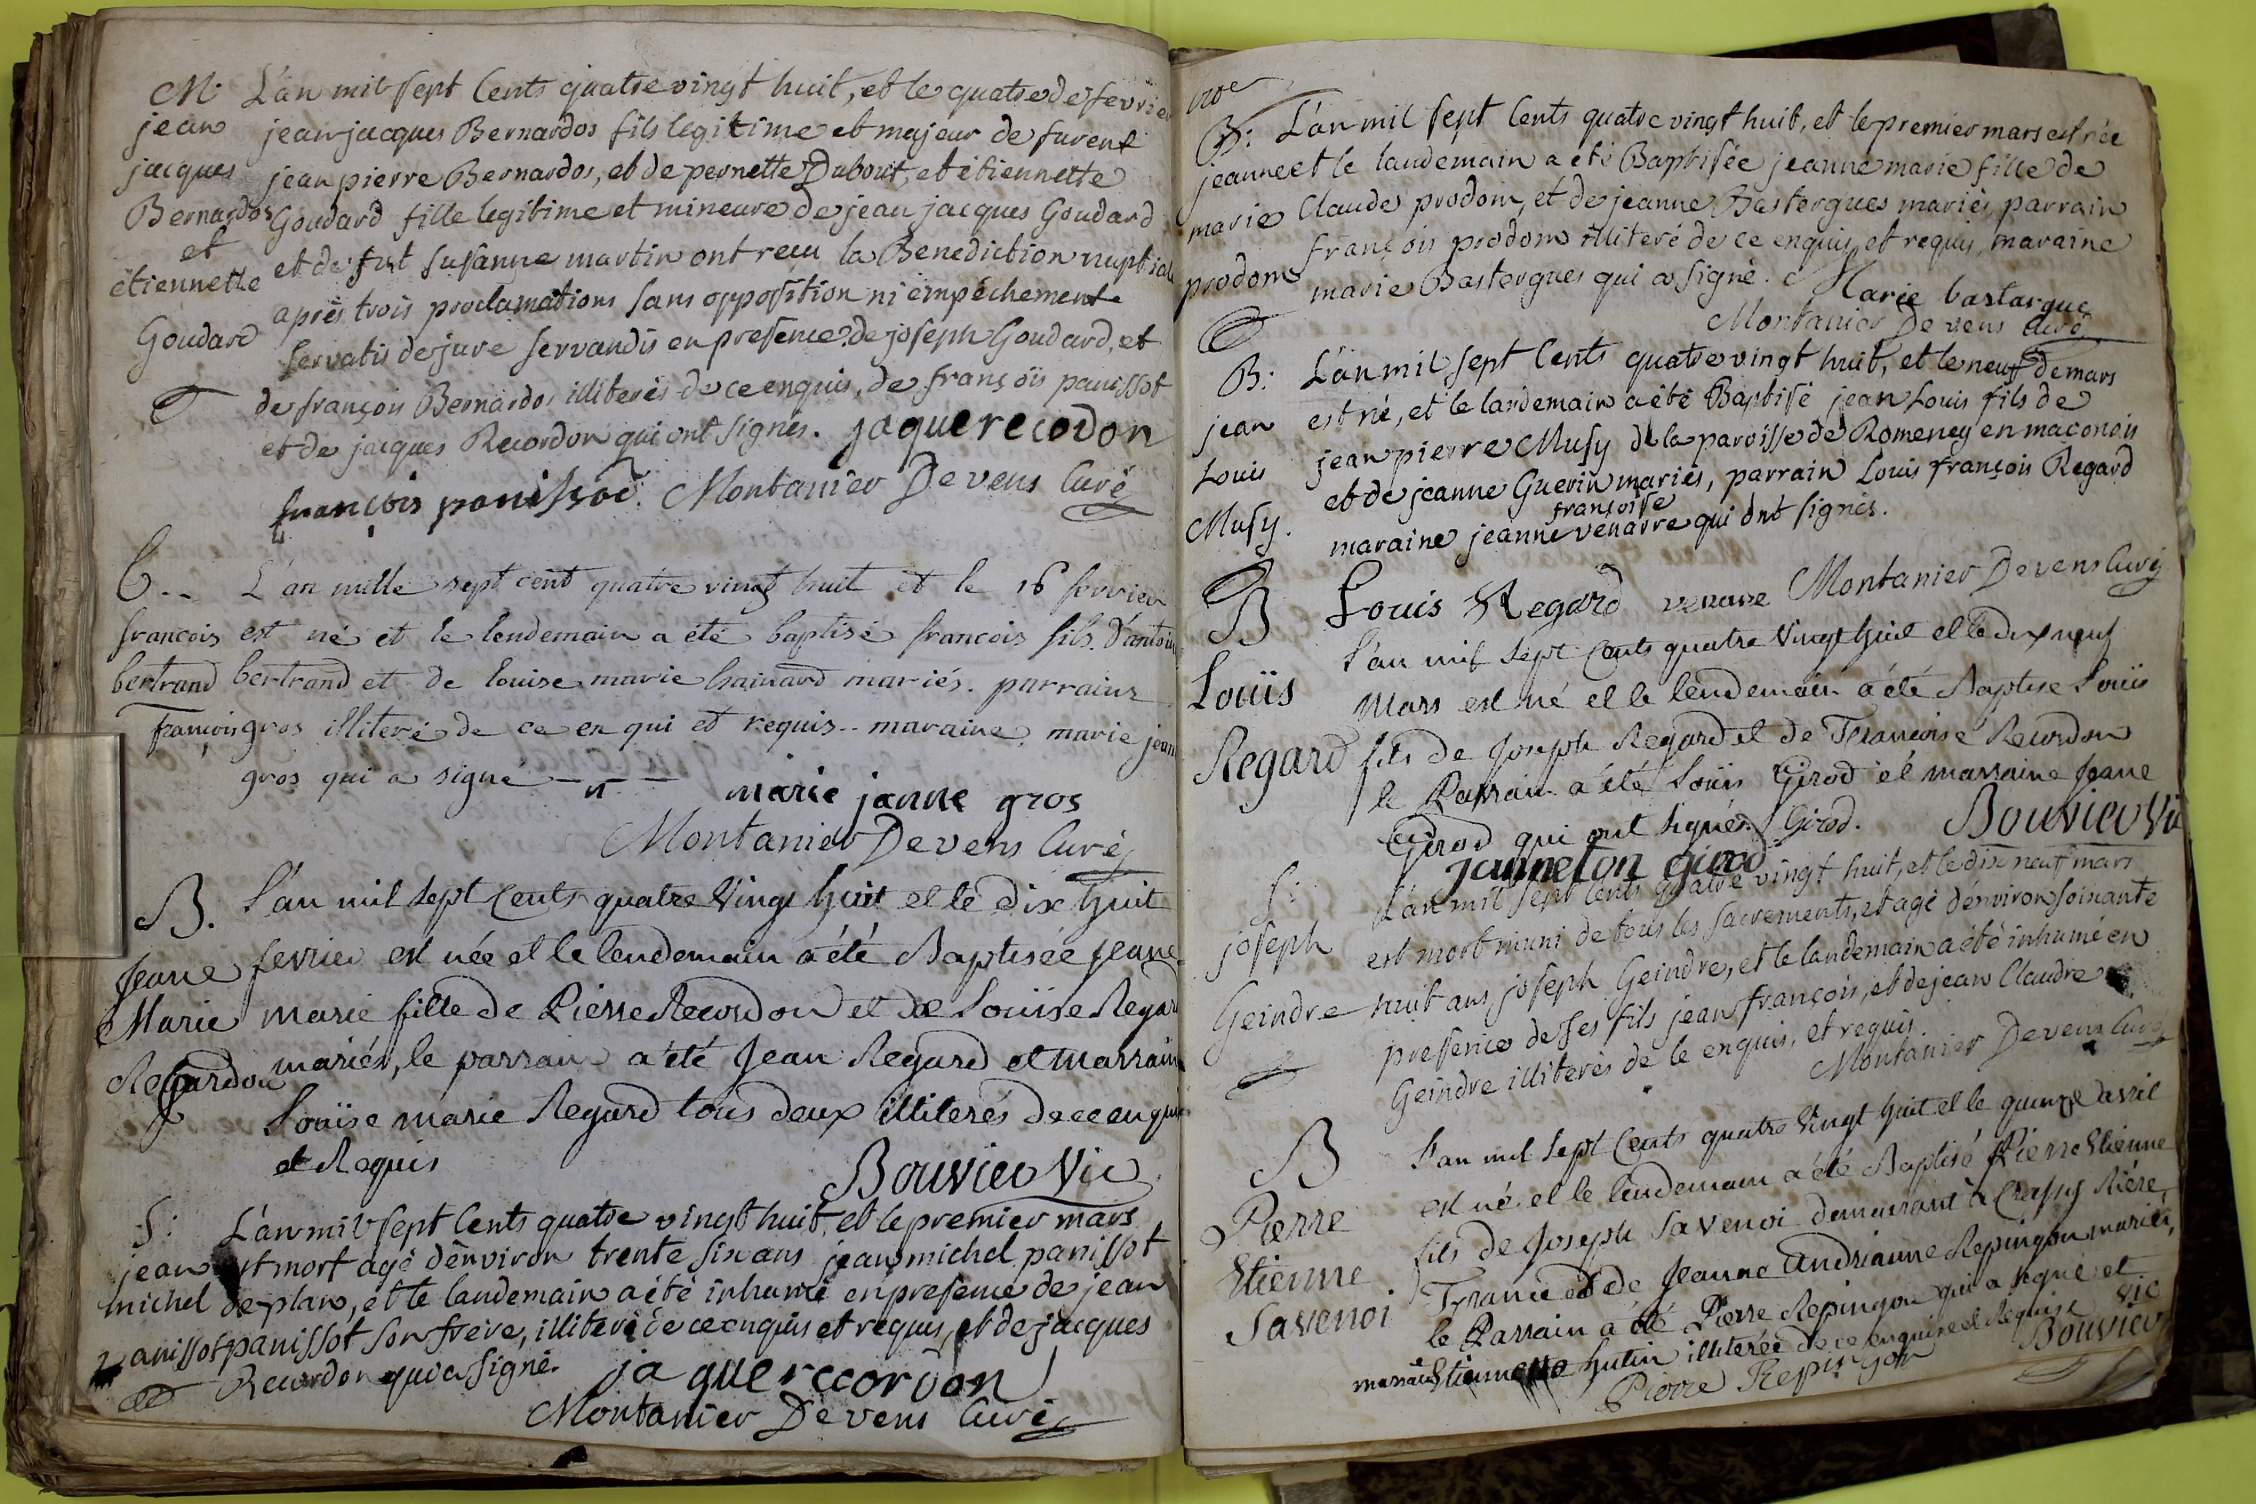 M. L'an mil sept Cents quatre vingt huit, et le quatre de fevrier
jean jean jacques Bernardos fils legitime et majeur de furent
jacques jean pierre Bernardos, et de pernette Dubout, et étiennette
Bernardos Goudard fille legitime et mineure de jean jacques Goudard
et et de fut susanne martin ont recu la Benediction nuptiale
étiennette après trois proclamations sans opposition ni empêchement
Goudard servatis de jure servandis en presence de joseph Goudard, et
de françois Bernardos illiterés de ce enquis, de françois panissot
et de jacques Recordon qui ont signés. jaque recodon
françois panissod. Montanier Devens Curé
B.. L'an mille sept cent quatre vingt huit et le 16 fevrier
francois est né et le lendemain a été baptisé francois fils d'antoine
bertrand bertrand et de louise marie hainard mariés. parrains
françois gros illiteré de ce en qui et requis.. maraine, marie jean
gros qui a signé
marie janne gros
Montanier Devens Curé
B. L'an mil sept Cents quatre Vingt huit et le dix huit
Jeane fevrier est née et le lendemain a été Baptisée Jeane
Marie marie fille de Pierre Recordon et de Louise Regard
mariés, le parrain a été Jean Regard et marraine
Louise marie Regard tous deux illiterés de ce enquis
et Requis
Bouvier Vic
S: L'an mil sept Cents quatre vingt huit, et le premier mars
jean est mort agé d'environ trente six ans jean michel panissot
michel de plan, et le landemain a été inhumé en presence de jean
panissot panissot son frere, illiteré de ce enquis et requis, et de jacques
Recordon qui a signé. jaque recordon
Montanier Devens Curé
B: L'an mil sept Cents quatre vingt huit, et le premier mars est née
jeanne et le landemain a été Baptisée jeanne marie fille de
marie Claude prodom, et de jeanne Bastergues mariés, parrain
prodom françois prodom illiteré de ce enquis, et requis, maraine
marie Bastergues qui a signé. Marie bastargue
Montanier Devens Curé
B: L'an mil sept Cents quatre vingt huit, et le neuf de mars
jean est né, et le landemain a été Baptisé jean Louis fils de
Louis jean pierre Musy de la paroisse de Romeney en maconois
Musy. et de jeanne Guerin mariés, parrain Louis françois Regard
françoise
maraine jeanne venarre qui ont signés.
Louis Regard venare Montanier Devens Curé
B L'an mil sept Cents quatre Vingt huit et le dix neuf
Louis Mars est né et le lendemain a été Baptise Louis
Regard fils de Joseph Regard et de Francoise Recordon
le Parrain a été Louis Girod et marraine Jeane
Girod qui ont signés. Girod. Bouvier Vic
janneton girod
S: L'an mil sept Cents quatre vingt huit, et le dix neuf mars
joseph est mort muni de tous les sacrements, et agé d'environ soixante
Geindre huit ans joseph Geindre, et le landemain a été inhumé en
presence de ses fils jean françois, et de jean Claudre
Geindre illiterés de le enquis, et requis.
Montanier Devens Curé
B L'an mil sept Cents quatre Vingt huit et le quinze d'avril
Pierre est né et le lendemain a été Baptisé Pierre Etienne
Etienne fils de Joseph Savenoi demeurant à Crassy Riére
Savenoi France et de Jeanne Andrianne Repingon mariés,
le Parrain a été Pierre Repingon qui a signé et
marraine Etiennette hutin illiterée de ce enquise et Requise
Pierre Repingon Bouvier Vic